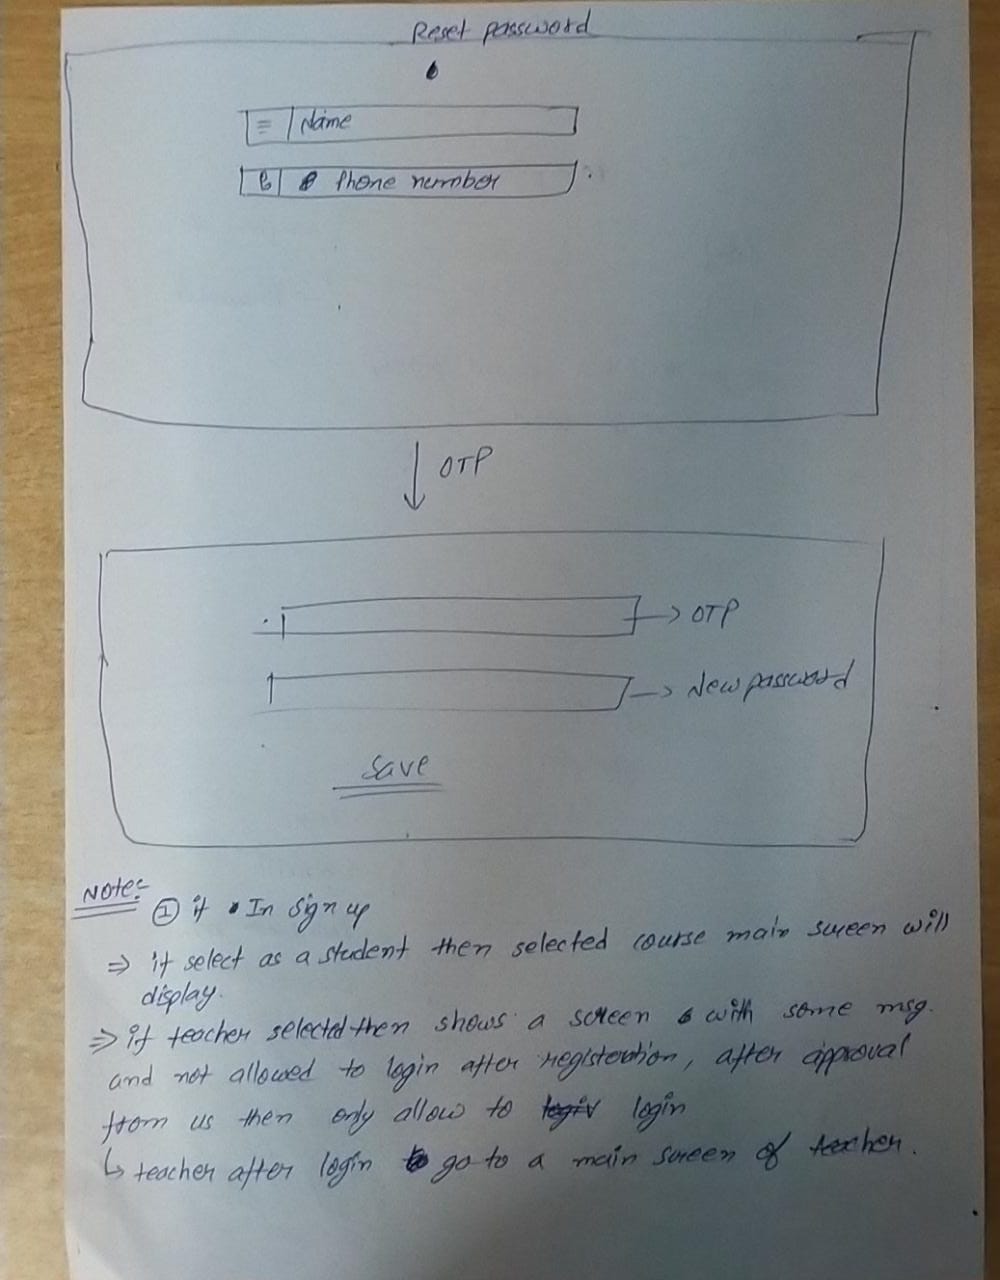 Reset password
Name
Phone number
OTP
OTP
New password
Save
Note:-
① if In Sign up
⇒ if select as a student then selected course main screen will
display.
⇒ if teacher selected then shows a screen with some msg.
and not allowed to login after registeration, after approval
from us then only allow to login
↳ teacher after login go to a main screen of teacher.